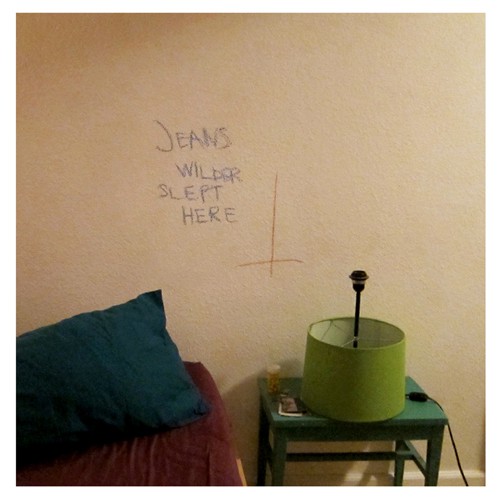 JEANS
WILDER
SLEPT
HERE